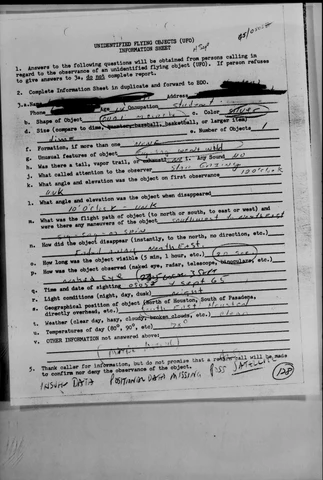 UNIDENTIFIED FLYING OBJECTS (UFO)
INFORMATION SHEET
1. Answers to the following questions will be obtained from persons calling in
regard to the observance of an unidentified flying object (UFO). If person refuses
to give answers to 3a, do not complete report.
2. Complete Information Sheet in duplicate and forward to
3.a. Name Address
Phone Age Occupation student
b. Shape of Object c. Color
d. Size (compare to dime, quarter, baseball, basketball, or larger item)
dime e. Number of Objects 1
f. Formation, if more than one NONE
g. Unusual features of object
h. Was there a tail, vapor trail, or exhaust Any Sound NO
j. What called attention to the observer Star Gazing
k. What angle and elevation was the object on first observance 10 O'clock
UNK
l. What angle and elevation was the object when disappeared
10 O'clock - UNK
m. What was the flight path of object (to north or south, to east or west) and
were there any maneuvers of the object southwest Northeast
n. How did the object disappear (instantly, to the north, no direction, etc.)
Faded away North East
o. How long was object visible (5 min, 1 hour, etc.)
p. How was the object observed (naked eye, radar, telescope, binoculars, etc.)
naked eye
q. Time and date of sighting Sept 65
r. Light conditions (night, day, dusk) night
s. Geographical position of object (North of Houston, South of Pasadena,
directly overhead, etc.)
t. Weather (clear day, hazy, cloudy, broken clouds, etc.) clear
u. Temperatures of day (80°, 90°, etc)
v. OTHER INFORMATION not answered above:
5. Thank caller for information, but do not promise that a return call will be made
to confirm nor deny the observance of the object.
INSUFF DATA POSITIONAL DATA MISSING POSS SATELLITE
128